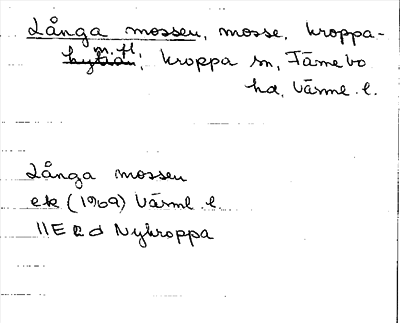 Långa mossen, mosse, Kroppa-
m. fl.
hyttan, Kroppa sn, Färnebo
hd, Värml. l.
Långa mossen
ek (1969) Värml. l.
11E 2 d Nykroppa